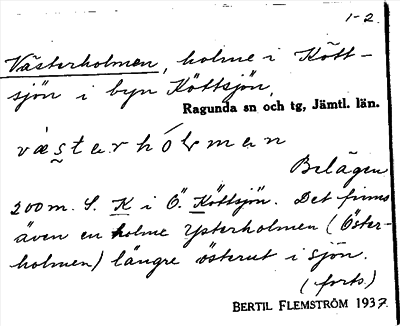 1-2.
Västerholmen, holme i Kött-
sjön i byn Köttsjön,
Ragunda sn och tg, Jämtl. län.
væstərhólmen
Belägen
200 m. S. K i Ö. Köttsjön. Det finns
även en holme Ysterholmen (Öster-
holmen) längre österut i sjön.
(forts.)
BERTIL FLEMSTRÖM 1937.